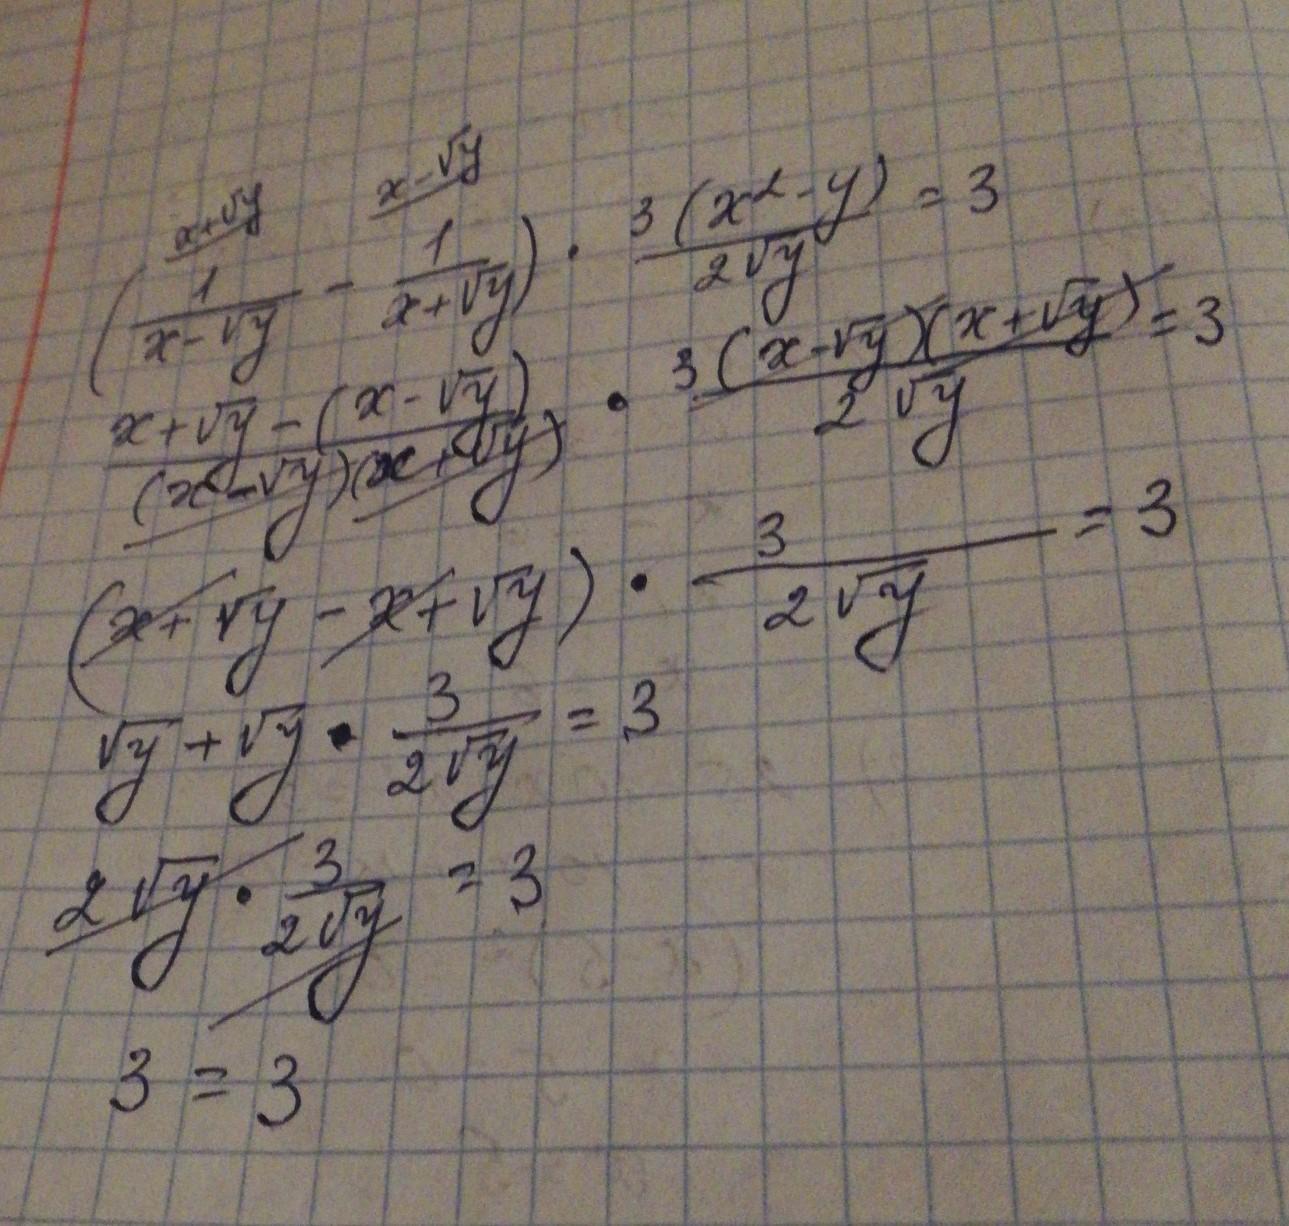 x+√y x-√y
(1/(x-√y) - 1/(x+√y)) · 3(x²-y)/(2√y) = 3
(x+√y-(x-√y))/((x-√y)(x+√y)) · 3(x-√y)(x+√y)/(2√y) = 3
(x+√y-x+√y) · 3/(2√y) = 3
√y+√y · 3/(2√y) = 3
2√y · 3/(2√y) = 3
3 = 3